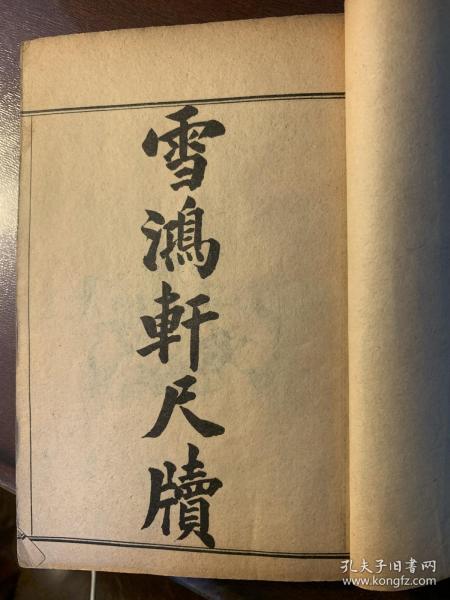 雪鴻軒尺牘
孔夫子旧书网
www.kongfz.com